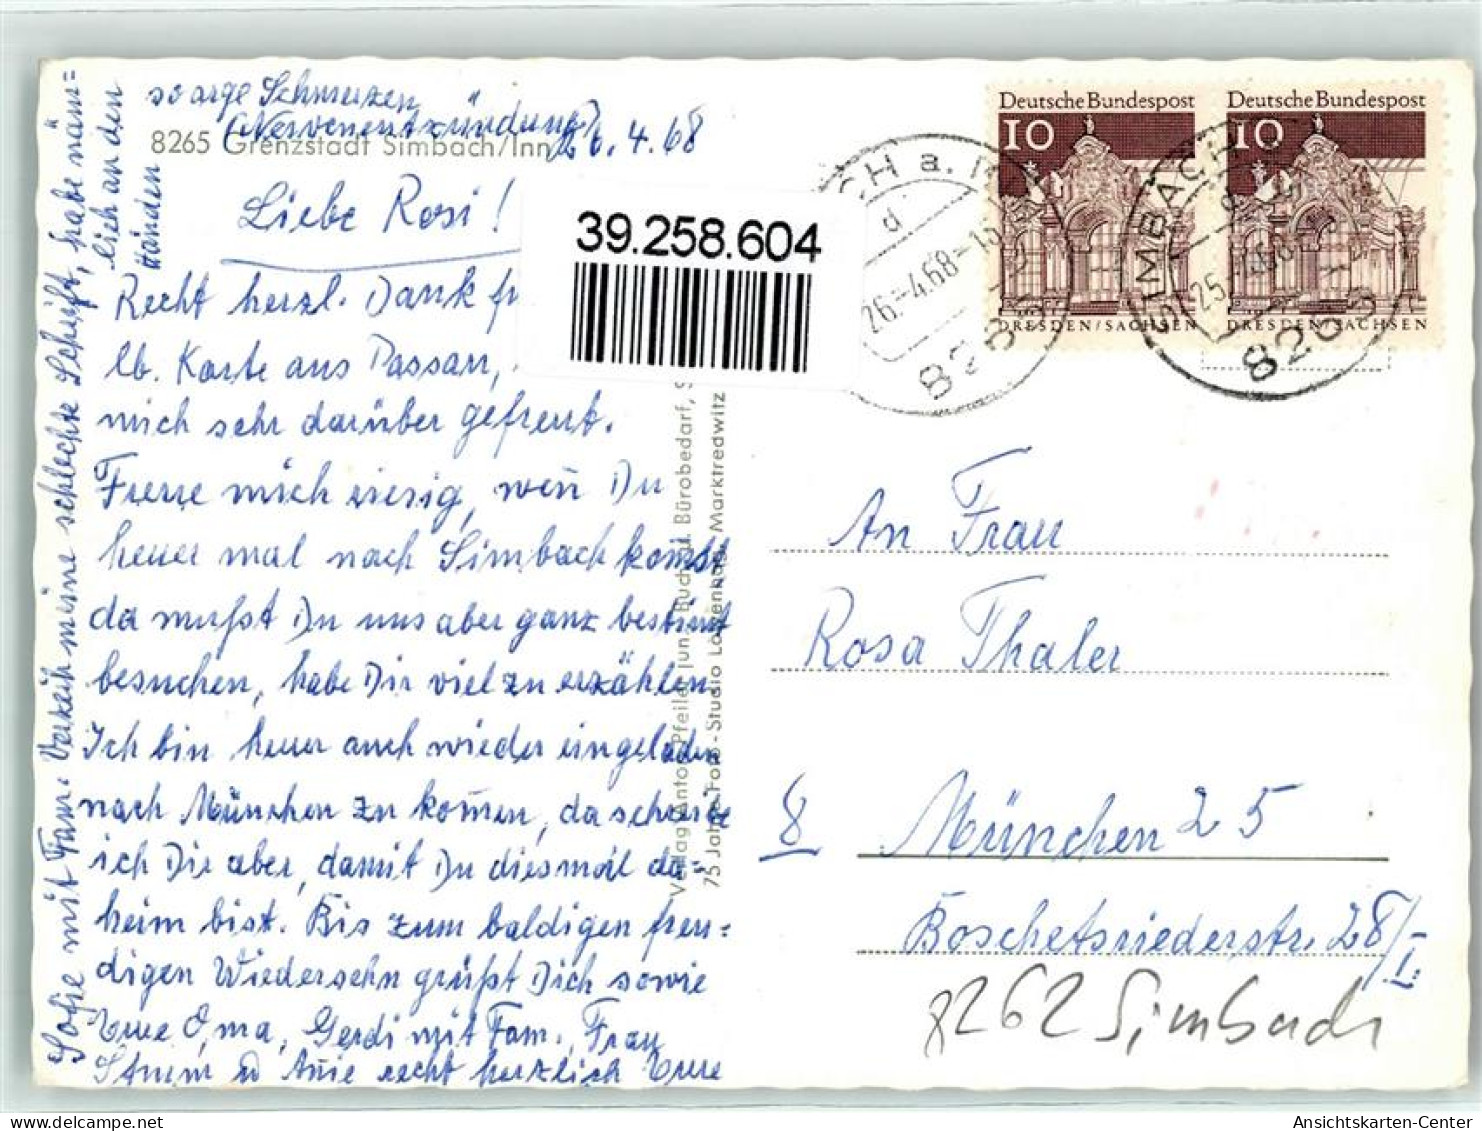 8265 Grenzstadt Simbach/Inn
26.4.68
Liebe Rosi!
Recht herzl. Dank
lb. Karte aus Passau,
mich sehr darüber gefreut.
Freue mich riesig, weñ Du
heuer mal nach Simbach kom̄st
da mußt Du uns aber ganz bestim̄t
besuchen, habe Dir viel zu erzählen.
Ich bin heuer auch wieder eingeladen
nach München zu kom̄en, da schreibe
ich Dir aber, damit Du diesmal da=
heim bist. Bis zum baldigen freu=
digen Wiedersehn grüßt Dich sowie
Eure Oma, Gerdi mit Fam., Frau
Sturm u Añie recht herzlich Eure
Sofie mit Fam. Verzeih meine schlechte Schrift, habe näm=
lich an den
Händen
so arge Schmerzen
(Nervenentzündung)
39.258.604
Verlag Anton Pfeiler jun., Buch- u. Bürobedarf, S
75 Jahre Foto-Studio Marktredwitz
Deutsche Bundespost
10
DRESDEN/SACHSEN
Deutsche Bundespost
10
DRESDEN/SACHSEN
CH a. I
d
26.-4.68-15
SIMBACH
8265
An Frau
Rosa Thaler
8 München 25
Boschetsriederstr. 28/I.
8262 Simbach
Ansichtskarten-Center